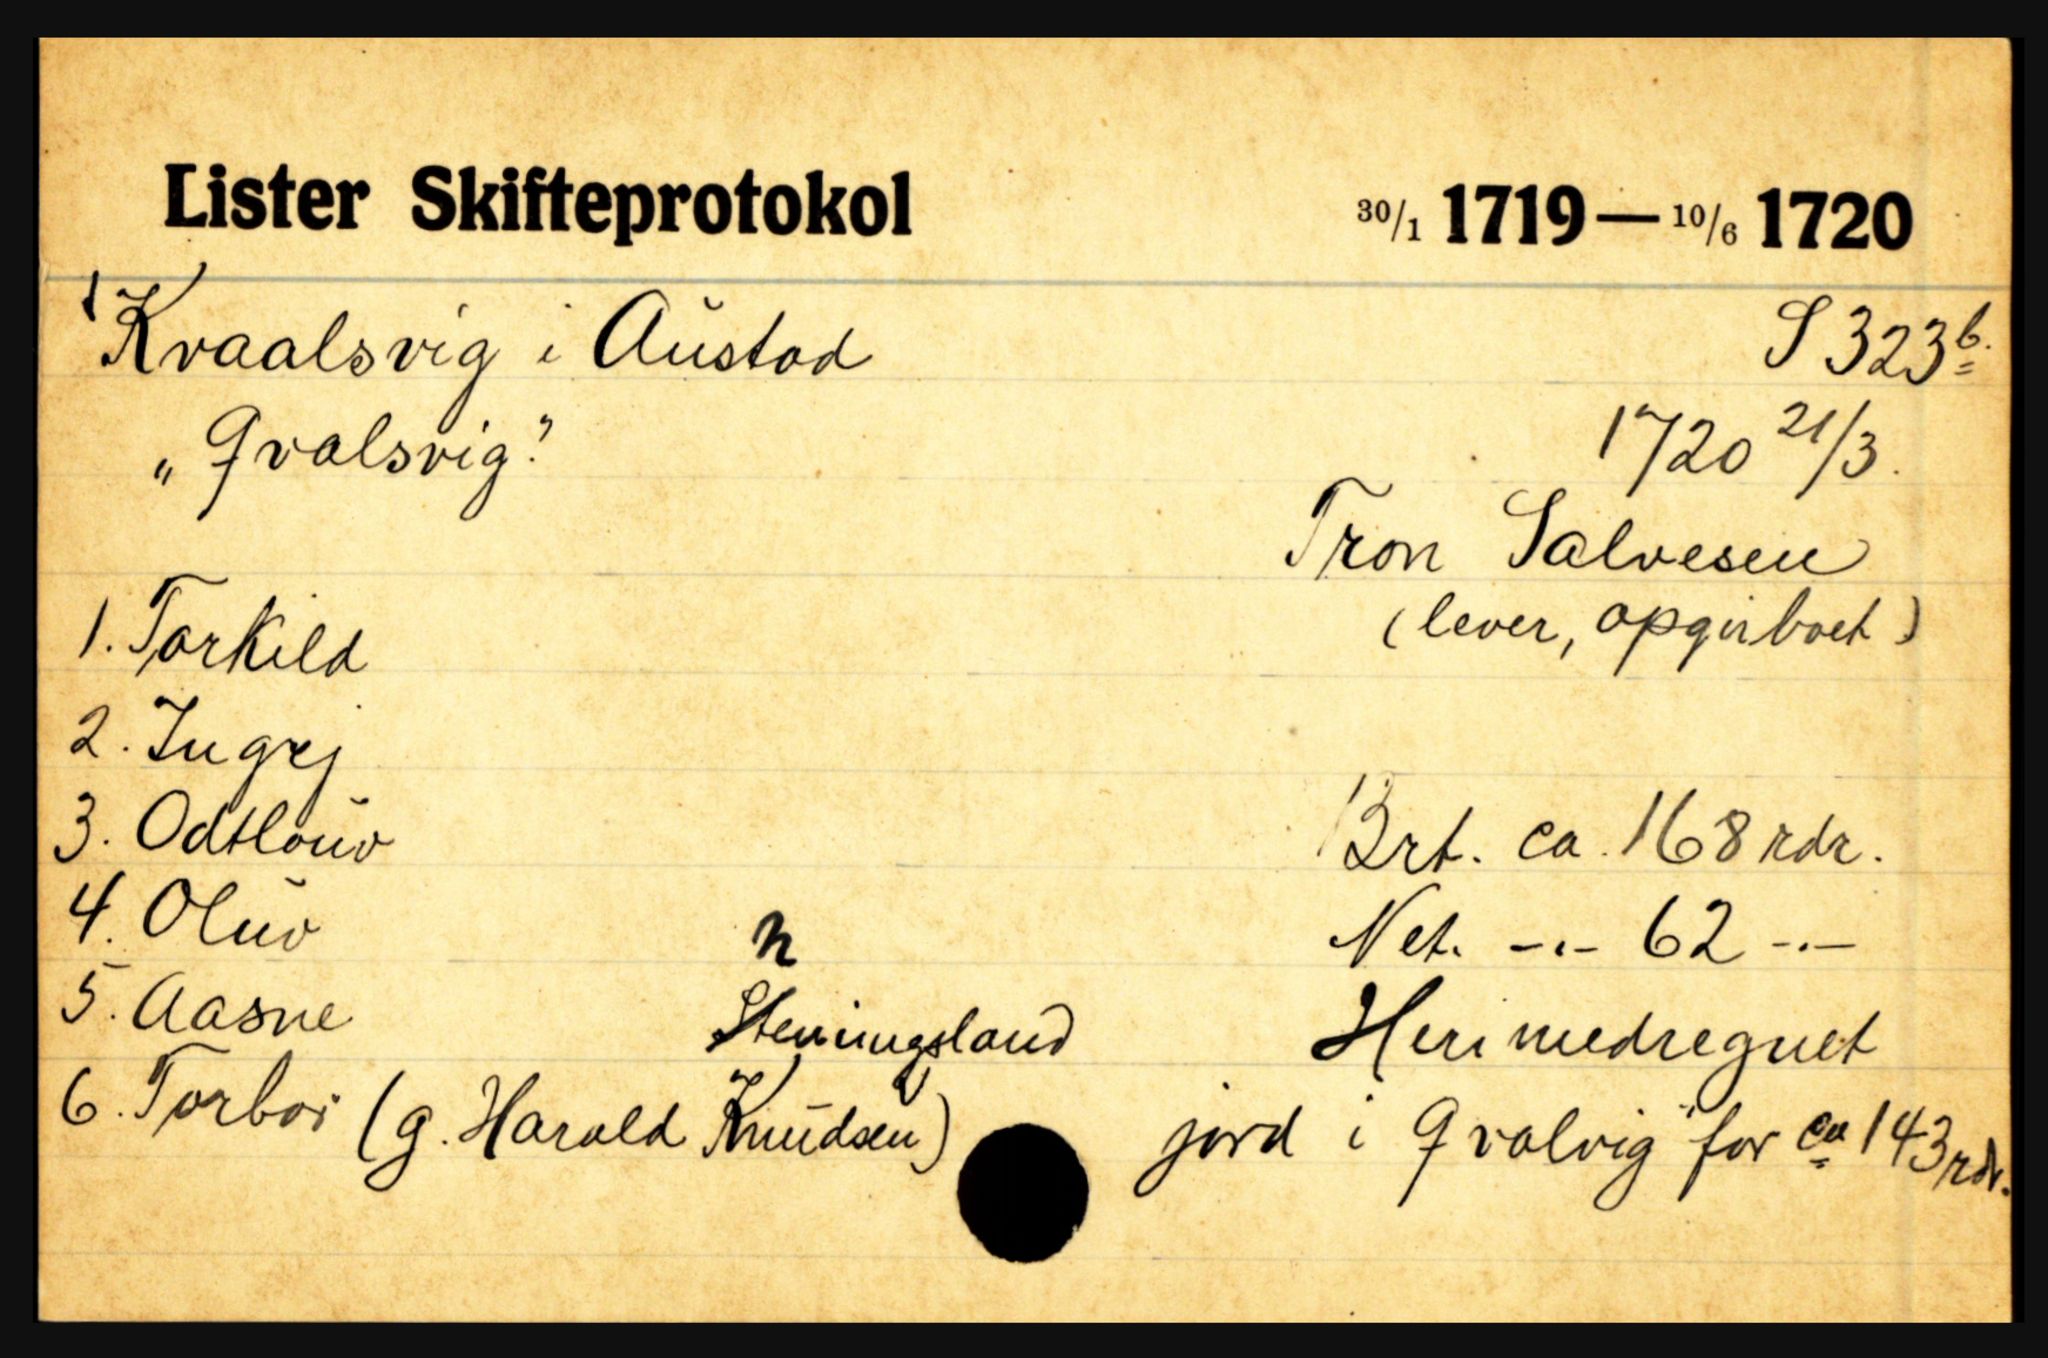 Lister Skifteprotokol 30/1 1719 — 10/6 1720
Kvaalsvig i Austad S 323 b.
„Qvalsvig". 1720 21/3.
Tron Salvesen
(lever, opgir boet)
1. Torkild
2. Ingrej
3. Odtlouv Brt. ca. 168 rdr.
4. Oluv Net. -"- 62 -"-
n
5. Aasne Steningsland Heri medregnet
6. Torbor (g. Harald Knudsen) jord i Qvalvig for ca 143 rdr.